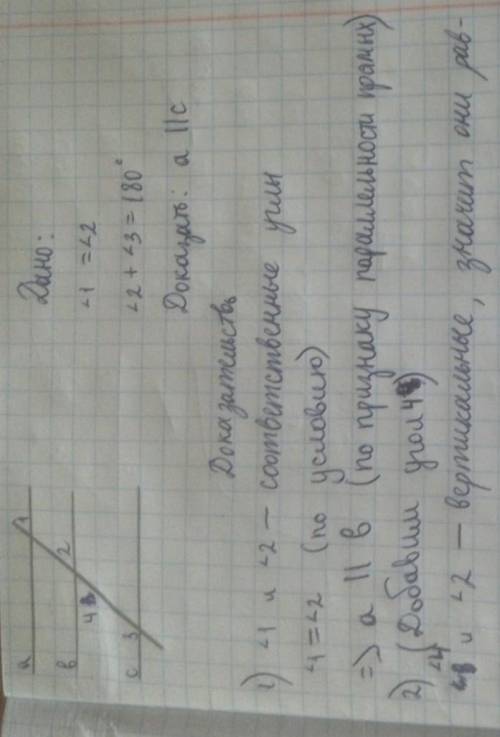 Дано:
∠1 = ∠2
∠2 + ∠3 = 180°
Доказать: a || c
a 1
b 2
4
c 3
Доказательство
1) ∠1 и ∠2 — соответственные углы
∠1 = ∠2 (по условию)
=> a || b (по признаку параллельности прямых)
2) (Добавим угол 4)
∠4 и ∠2 — вертикальные, значит они рав-